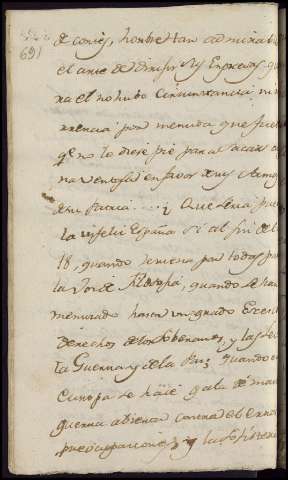 691
de comies, hombre tan admirab
el arte de dirijir sus Empresas, q
ra el no hubo circunstancia, ni
rrencia por menuda que fue
qe. no le diese pie para sacar
na ventaja en favor de sus Armas
de su Patria .... ¿ Que sera, pues
la infeliz España si al fin del
18, quando resuena por todas pa
la voz de Filosofia, quando se han
menuzado hasta un grado Exce
derechos de los soberanos, y las le
la Guerra, y de la Paz, quando en
Europa se hace gala de
guerra abierta contra el error
preocupaciones y la